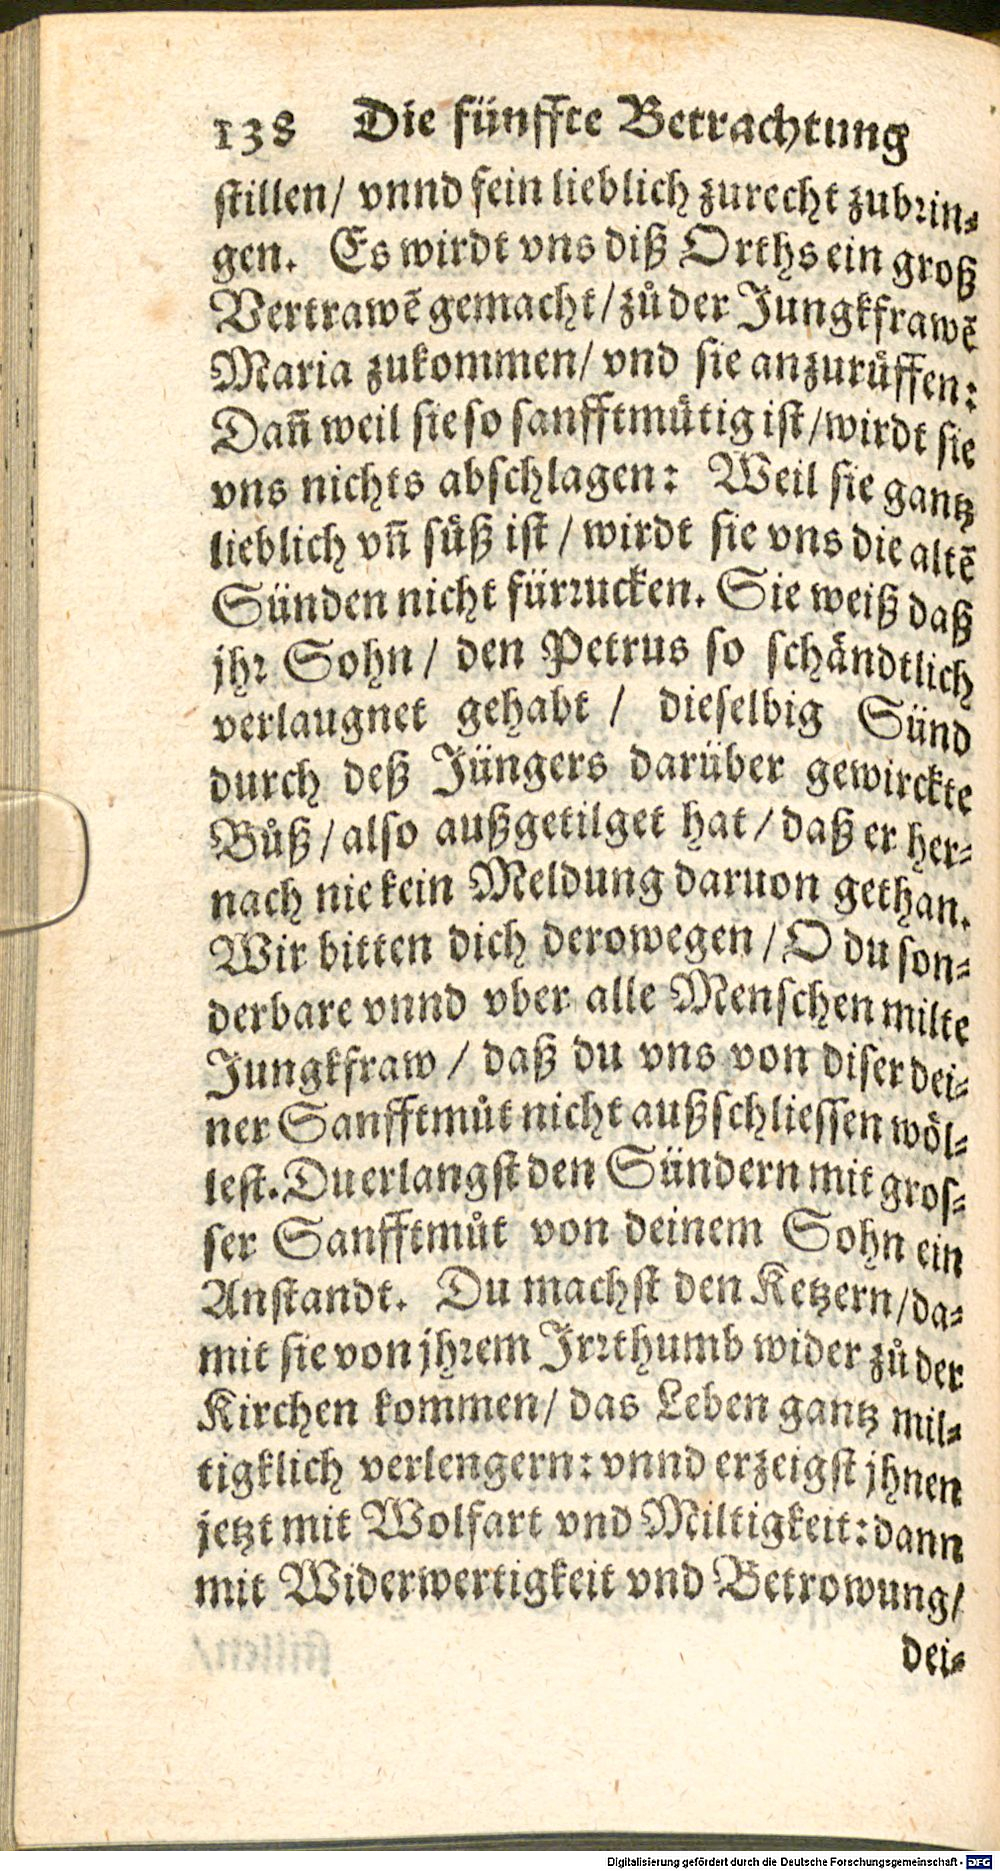 138 Die fünffte Betrachtung
stillen/ vnnd fein lieblich zurecht zubrin-
gen. Es wirdt vns diß Orths ein groß
Vertrawẽ gemacht/ zů der Jungkfrawẽ
Maria zukommen/ vnd sie anzurůffen:
Dañ weil sie so sanfftmütig ist/ wirdt sie
vns nichts abschlagen: Weil sie gantz
lieblich vñ süß ist / wirdt sie vns die altẽ
Sünden nicht fürrucken. Sie weiß daß
jhr Sohn / den Petrus so schändtlich
verlaugnet gehabt / dieselbig Sünd
durch deß Jüngers darüber gewirckte
Bůß / also außgetilget hat / daß er her-
nach nie kein Meldung daruon gethan.
Wir bitten dich derowegen / O du son-
derbare vnnd vber alle Menschen milte
Jungkfraw / daß du vns von diser dei-
ner Sanfftmůt nicht außschliessen wöl-
lest. Du erlangst den Sündern mit gros-
ser Sanfftmůt von deinem Sohn ein
Anstandt. Du machst den Ketzern/ da-
mit sie von jhrem Irrthumb wider zů der
Kirchen kommen/ das Leben gantz mil-
tigklich verlengern: vnnd erzeigst jhnen
jetzt mit Wolfart vnd Miltigkeit: dann
mit Widerwertigkeit vnd Betrowung/
dei-
Digitalisierung gefördert durch die Deutsche Forschungsgemeinschaft - DFG